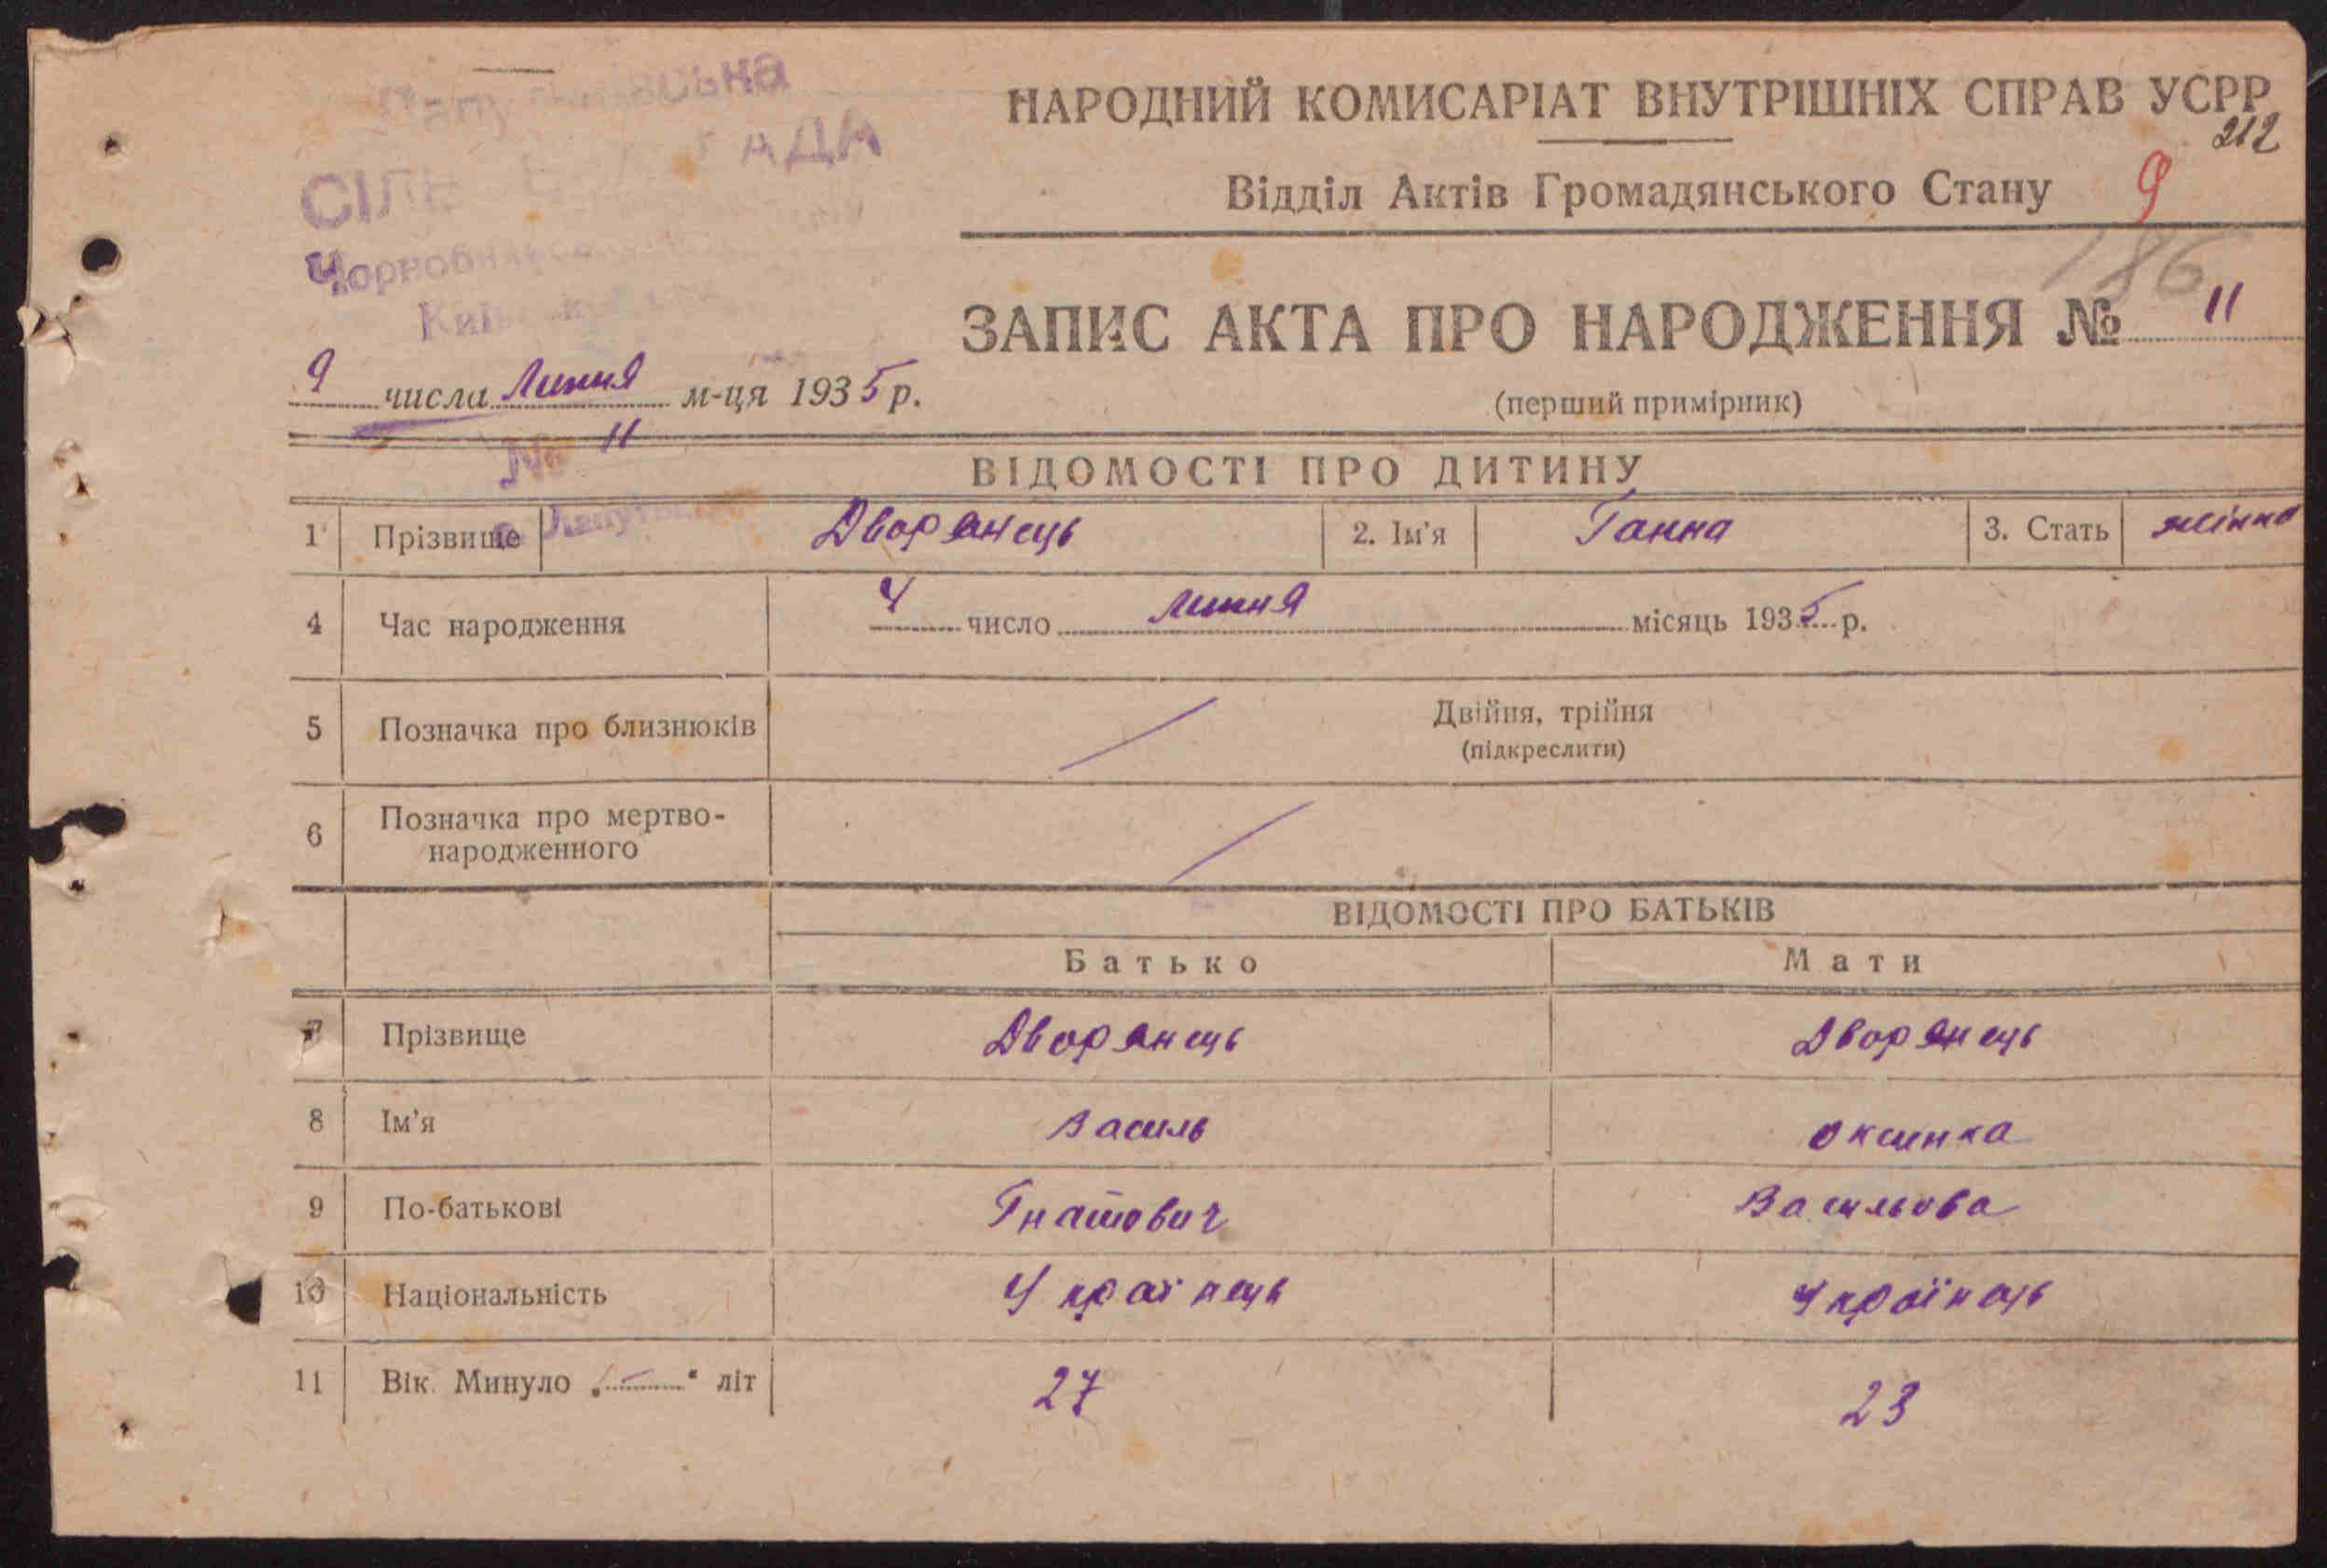 НАРОДНИЙ КОМИСАРІАТ ВНУТРІШНІХ СПРАВ УСРР
212
Відділ Актів Громадянського Стану 9
186
ЗАПИС АКТА ПРО НАРОДЖЕННЯ № 11
(перший примірник)
РАДА
9 числа Липня м-ця 1935 р.
№ 11
ВІДОМОСТІ ПРО ДИТИНУ
1 Прізвище Дворянець 2. Ім'я Ганна 3. Стать жіноча
4 Час народження 4 число Липня місяць 1935 р.
5 Позначка про близнюків Двійня, трійня
(підкреслити)
6 Позначка про мертво-
народженного
ВІДОМОСТІ ПРО БАТЬКІВ
Батько Мати
7 Прізвище Дворянець Дворянець
8 Ім'я Василь
9 По-батькові Гнатович Васильова
10 Національність Українець Українець
11 Вік. Минуло „ — " літ 27 23